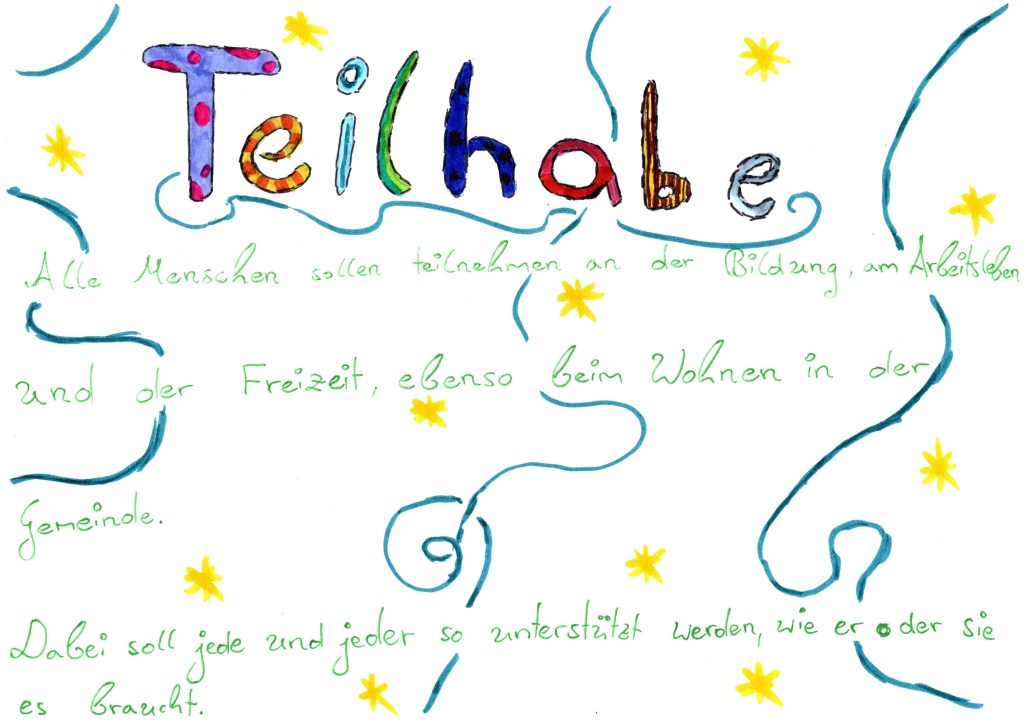 Teilhabe
Alle Menschen sollen teilnehmen an der Bildung, am Arbeitsleben
und der Freizeit, ebenso beim Wohnen in der
Gemeinde.
Dabei soll jede und jeder so unterstützt werden, wie er oder sie
es braucht.